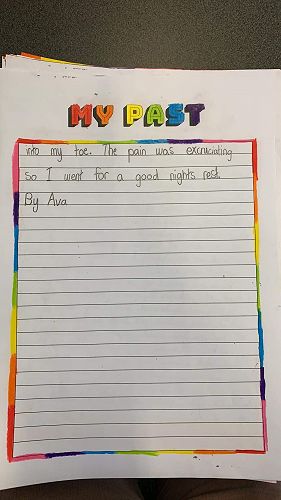 MY PAST
into my toe. The pain was excruciating
so I went for a good nights rest.
By Ava